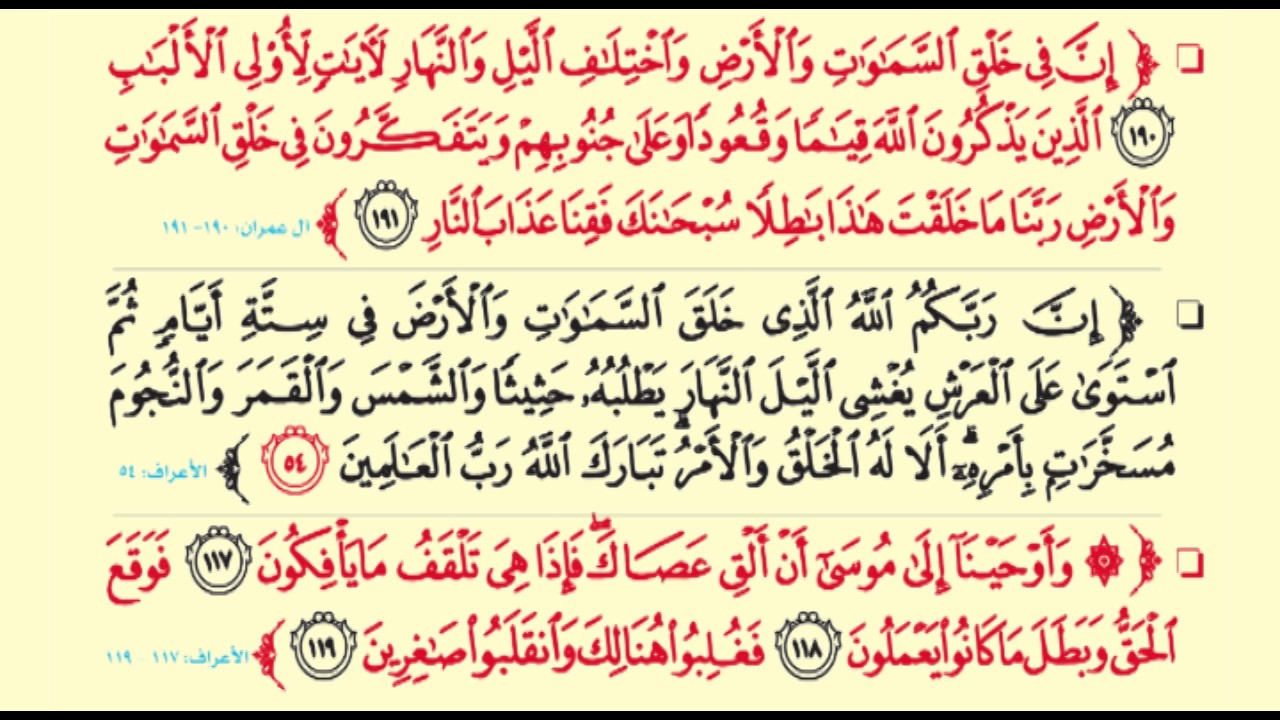 ❏ ﴿ إِنَّ فِي خَلْقِ ٱلسَّمَـٰوَٰتِ وَٱلْأَرْضِ وَٱخْتِلَـٰفِ ٱلَّيْلِ وَٱلنَّهَارِ لَـَٔايَـٰتٍ لِّأُو۟لِى ٱلْأَلْبَـٰبِ
١٩٠ ٱلَّذِينَ يَذْكُرُونَ ٱللَّهَ قِيَـٰمًا وَقُعُودًا وَعَلَىٰ جُنُوبِهِمْ وَيَتَفَكَّرُونَ فِى خَلْقِ ٱلسَّمَـٰوَٰتِ
وَٱلْأَرْضِ رَبَّنَا مَا خَلَقْتَ هَـٰذَا بَـٰطِلًا سُبْحَـٰنَكَ فَقِنَا عَذَابَ ٱلنَّارِ ١٩١ ﴾ ال عمران: ١٩٠- ١٩١
❏ ﴿ إِنَّ رَبَّكُمُ ٱللَّهُ ٱلَّذِى خَلَقَ ٱلسَّمَـٰوَٰتِ وَٱلْأَرْضَ فِى سِتَّةِ أَيَّامٍ ثُمَّ
ٱسْتَوَىٰ عَلَى ٱلْعَرْشِ يُغْشِى ٱلَّيْلَ ٱلنَّهَارَ يَطْلُبُهُۥ حَثِيثًا وَٱلشَّمْسَ وَٱلْقَمَرَ وَٱلنُّجُومَ
مُسَخَّرَٰتٍۭ بِأَمْرِهِۦٓ ۗ أَلَا لَهُ ٱلْخَلْقُ وَٱلْأَمْرُ ۗ تَبَارَكَ ٱللَّهُ رَبُّ ٱلْعَـٰلَمِينَ ٥٤ ﴾ الأعراف: ٥٤
❏ ﴿ ۞ وَأَوْحَيْنَآ إِلَىٰ مُوسَىٰٓ أَنْ أَلْقِ عَصَاكَ ۖ فَإِذَا هِىَ تَلْقَفُ مَا يَأْفِكُونَ ١١٧ فَوَقَعَ
ٱلْحَقُّ وَبَطَلَ مَا كَانُوا۟ يَعْمَلُونَ ١١٨ فَغُلِبُوا۟ هُنَالِكَ وَٱنقَلَبُوا۟ صَـٰغِرِينَ ١١٩ ﴾ الأعراف: ١١٧ - ١١٩